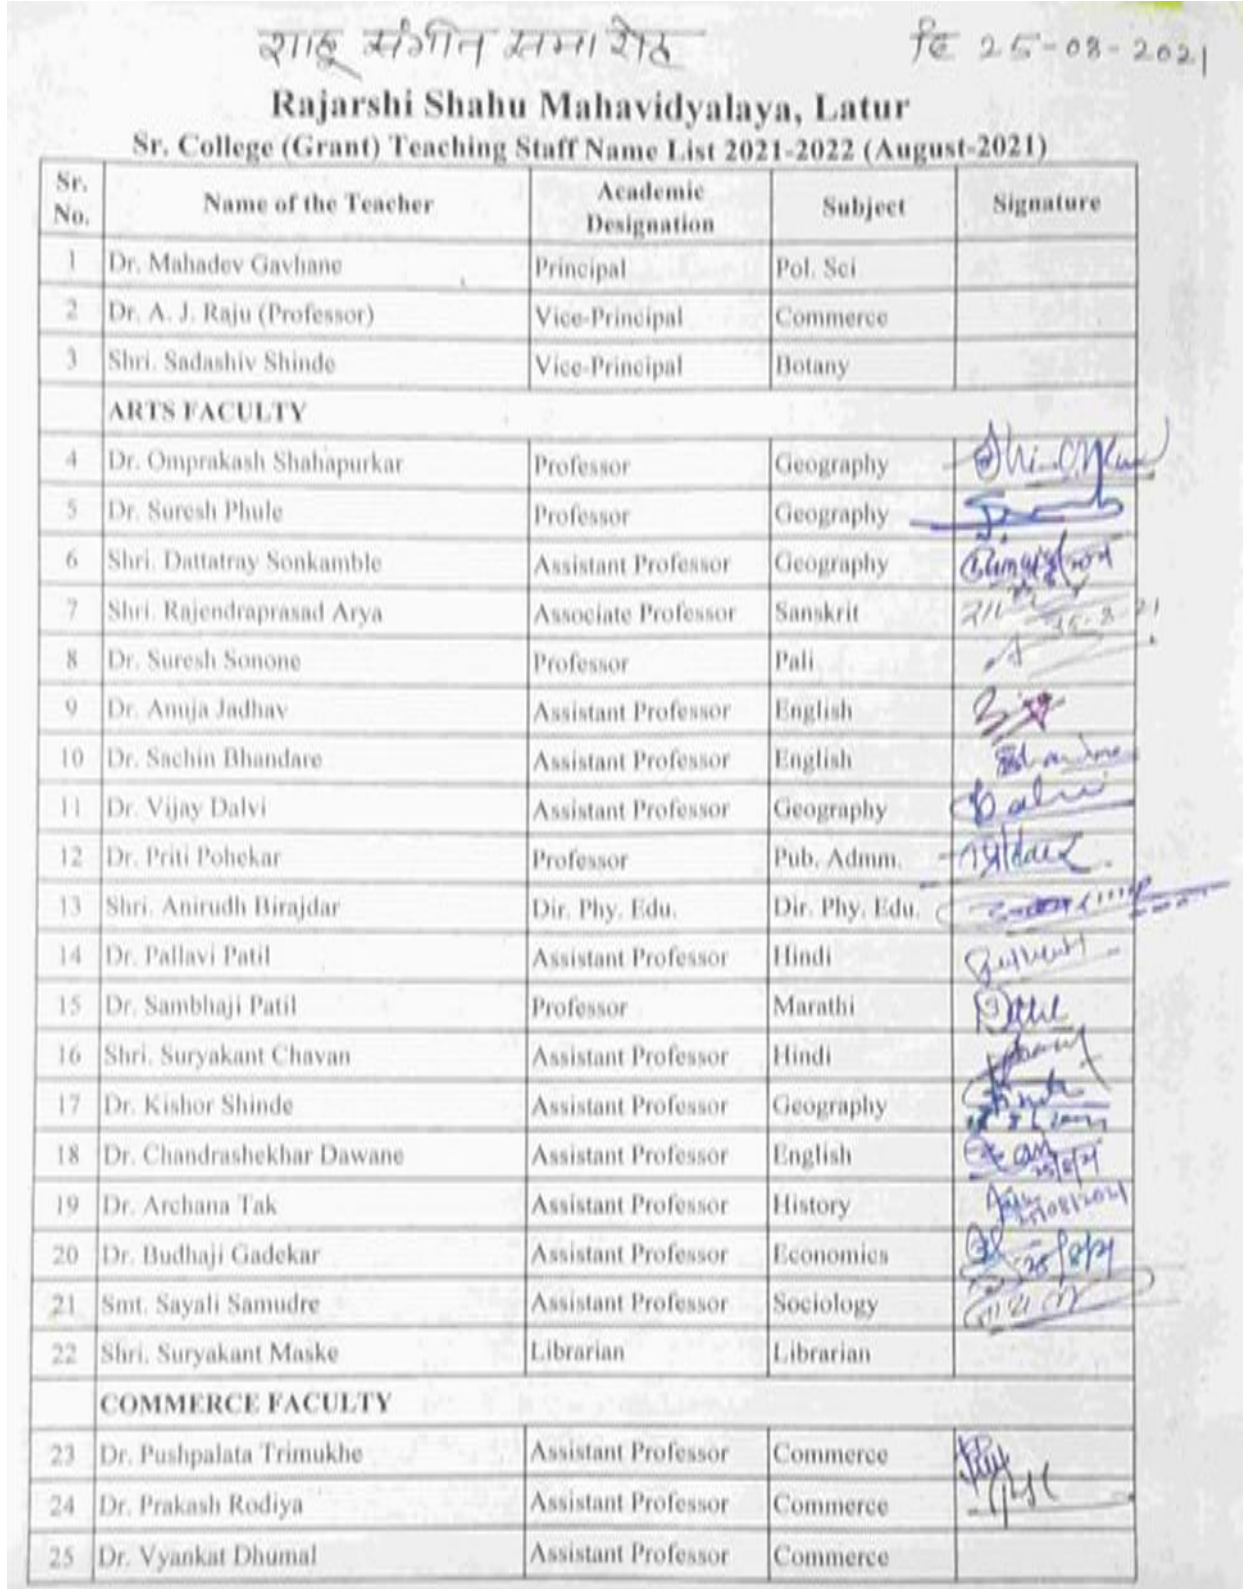 शाहू संगीत समारोह दि 25-08-2021
Rajarshi Shahu Mahavidyalaya, Latur
Sr. College (Grant) Teaching Staff Name List 2021-2022 (August-2021)
Sr. No. Name of the Teacher Academic Designation Subject Signature
1 Dr. Mahadev Gavhane Principal Pol. Sci
2 Dr. A. J. Raju (Professor) Vice-Principal Commerce
3 Shri. Sadashiv Shinde Vice-Principal Botany
ARTS FACULTY
4 Dr. Omprakash Shahapurkar Professor Geography
5 Dr. Suresh Phule Professor Geography
6 Shri. Dattatray Sonkamble Assistant Professor Geography
7 Shri. Rajendraprasad Arya Associate Professor Sanskrit
8 Dr. Suresh Sonone Professor Pali
9 Dr. Anuja Jadhav Assistant Professor English
10 Dr. Sachin Bhandare Assistant Professor English
11 Dr. Vijay Dalvi Assistant Professor Geography
12 Dr. Priti Pohekar Professor Pub. Admm.
13 Shri. Anirudh Birajdar Dir. Phy. Edu. Dir. Phy. Edu.
14 Dr. Pallavi Patil Assistant Professor Hindi
15 Dr. Sambhaji Patil Professor Marathi
16 Shri. Suryakant Chavan Assistant Professor Hindi
17 Dr. Kishor Shinde Assistant Professor Geography
18 Dr. Chandrashekhar Dawane Assistant Professor English 25/8/21
19 Dr. Archana Tak Assistant Professor History 25/08/2021
20 Dr. Budhaji Gadekar Assistant Professor Economics 25/8/21
21 Smt. Sayali Samudre Assistant Professor Sociology
22 Shri. Suryakant Maske Librarian Librarian
COMMERCE FACULTY
23 Dr. Pushpalata Trimukhe Assistant Professor Commerce
24 Dr. Prakash Rodiya Assistant Professor Commerce
25 Dr. Vyankat Dhumal Assistant Professor Commerce